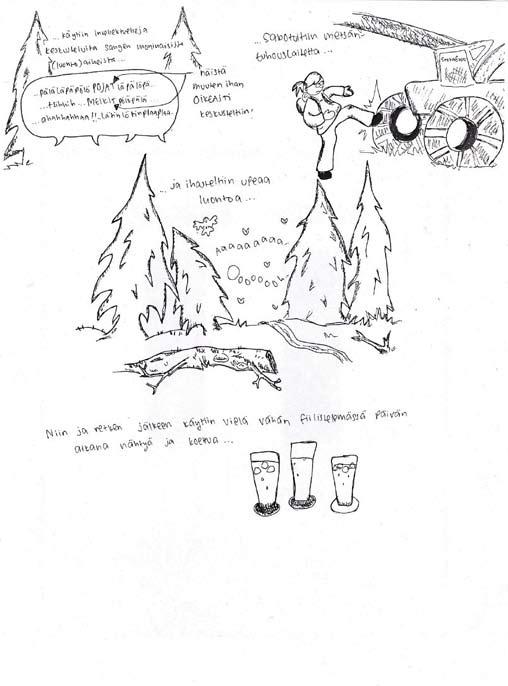 ...käytiin intellektuelleja
keskusteluita sangen moninaisista
(luonto)aiheista...
...pälälöpäpälö POJAT löpälöpä...
...tihihih ...MEIKIT pöläpälö
...ahahhahhaa!!..
näistä
muuten ihan
OIKEASTI
keskusteltiin!
...Sabotoitiin metsän-
tuhouslaitetta...
...ja ihasteltiin upeaa
luontoa...
Aaaaaaaaa..
Ooooooo..
Niin ja retken jälkeen käytiin vielä vähän fiilistelemässä päivän
aikana nähtyä ja koettua...